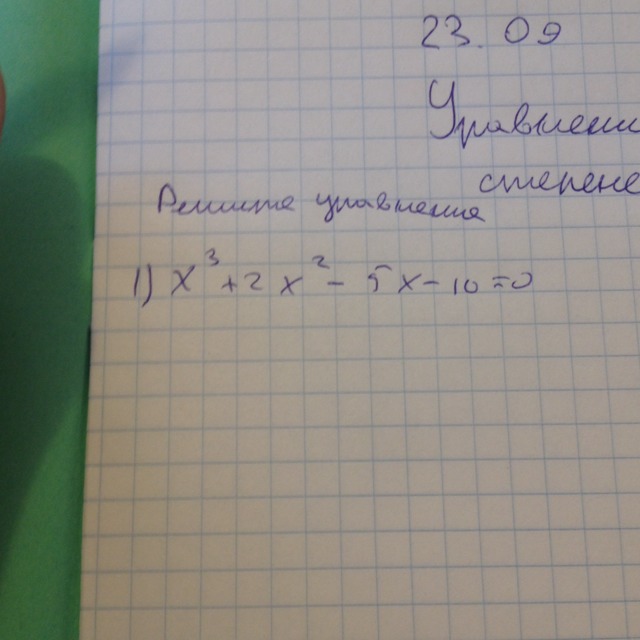 23. 09
Уравнени
степене
Решите уравнения
1) x³ + 2x² - 5x - 10 = 0